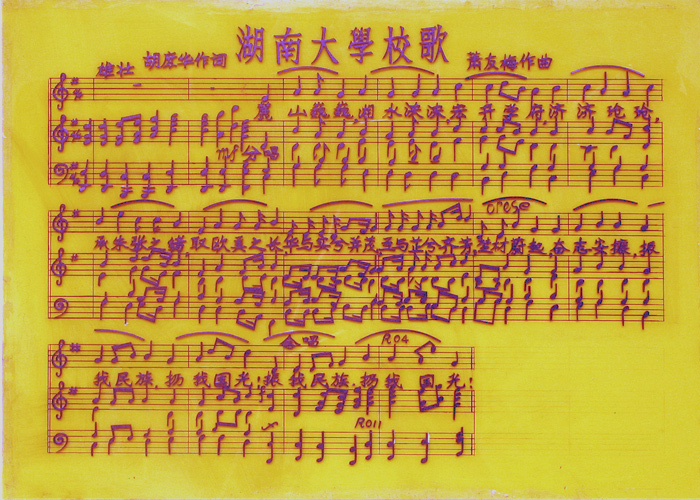 湖南大學校歌
雄壮 胡庶华作词 萧友梅作曲
麓 山巍巍,湘水泱泱,宏 开学府,济 济 沧 沧,
mf 分唱
cresc
承朱张之绪,取欧美之长,华与实兮并茂,兰与芷兮齐芳,楚材蔚起,奋志安攘,振
合唱
我民族,扬 我国光!振 我民族,扬我 国 光!